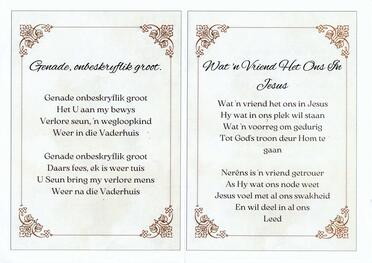 Genade, onbeskryflik groot.
Genade onbeskryflik groot
Het U aan my bewys
Verlore seun, 'n wegloopkind
Weer in die Vaderhuis
Genade onbeskryflik groot
Daars fees, ek is weer tuis
U Seun bring my verlore mens
Weer na die Vaderhuis
Wat 'n Vriend Het Ons In
Jesus
Wat 'n vriend het ons in Jesus
Hy wat in ons plek wil staan
Wat 'n voorreg om gedurig
Tot God's troon deur Hom te
gaan
Nerêns is 'n vriend getrouer
As Hy wat ons node weet
Jesus voel met al ons swakheid
En wil deel in al ons
Leed